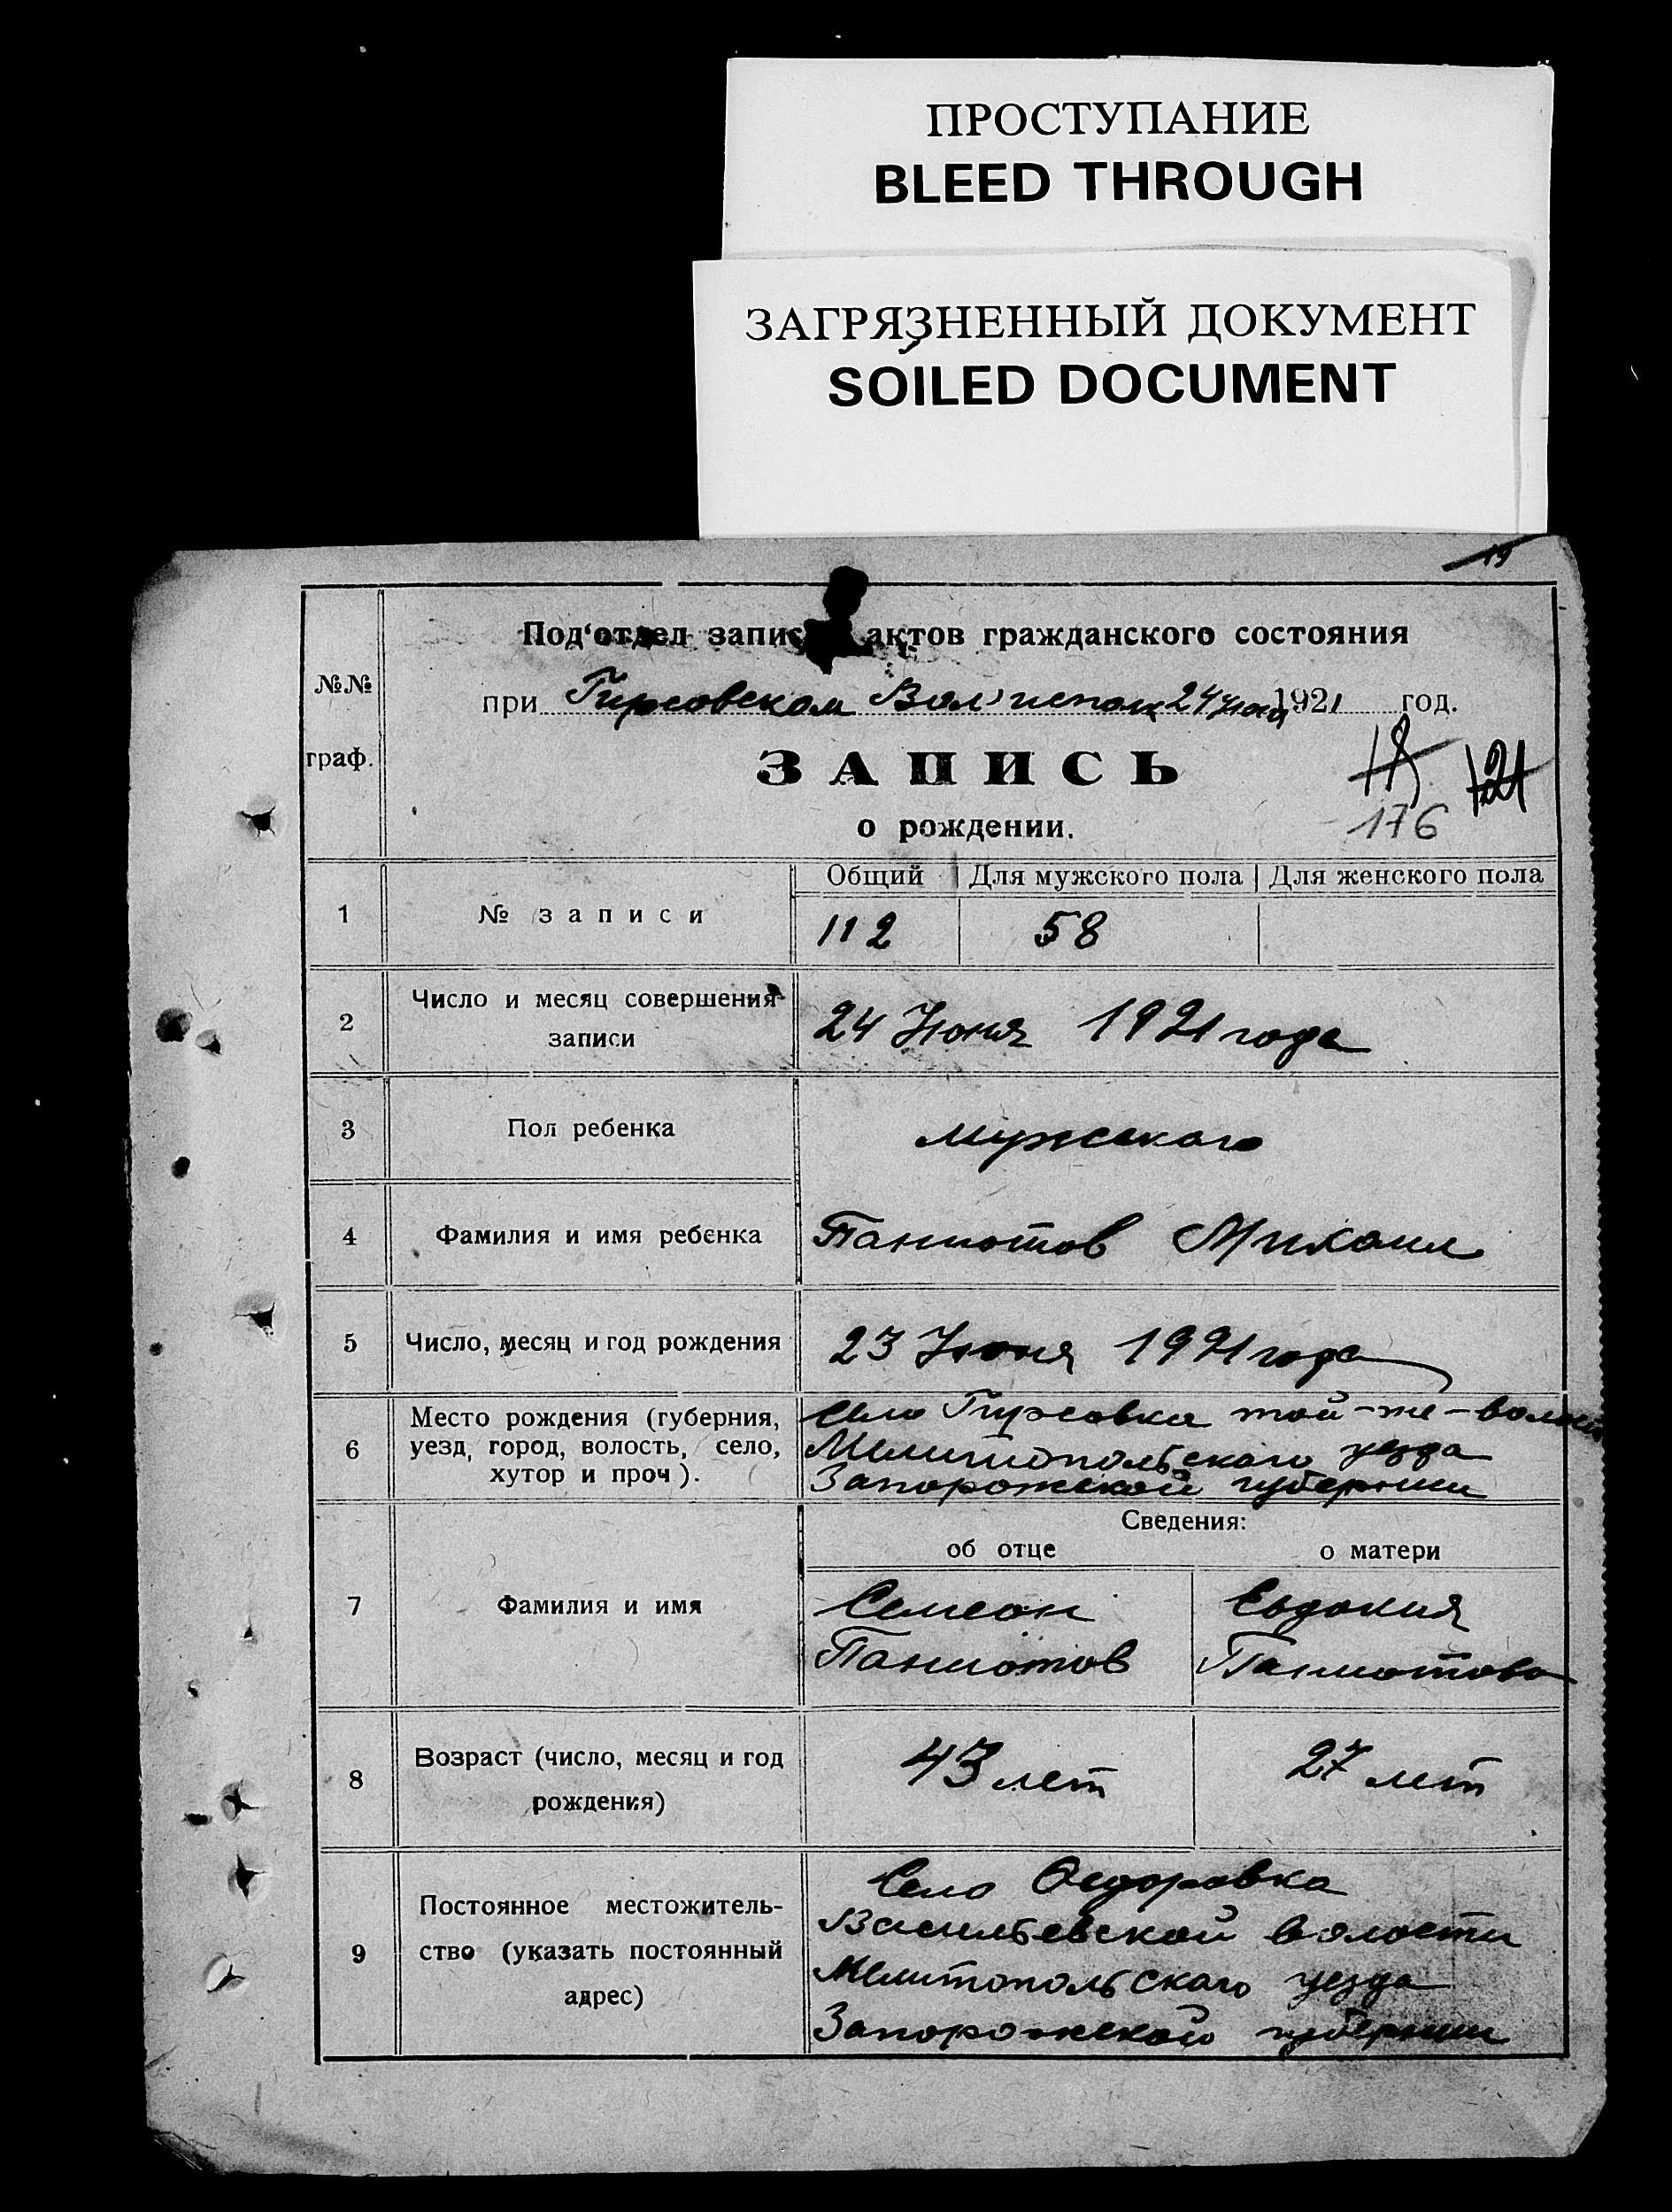 ПРОСТУПАНИЕ
BLEED THROUGH
ЗАГРЯЗНЕННЫЙ ДОКУМЕНТ
SOILED DOCUMENT
19
Под'отдел запис актов гражданского состояния
№№ при Гирсовском Вол'исполк 24 июня 1921 год.
граф. ЗАПИСЬ
18 121
о рождении. 176
Общий Для мужского пола Для женского пола
1 № записи 112 58
2 Число и месяц совершения
записи
24 Июня 1921 года
3 Пол ребенка мужского
4 Фамилия и имя ребенка Паниотов Михаил
5 Число, месяц и год рождения 23 Июня 1921 года
6 Место рождения (губерния,
уезд, город, волость, село,
хутор и проч).
Село Гирсовка той-же-волости
Мелитопольского уезда
Запорожской губернии
Сведения:
об отце о матери
7 Фамилия и имя
Семеон Евдокия
Паниотов Паниотова
8 Возраст (число, месяц и год
рождения)
43 лет 27 лет
9 Постоянное местожитель-
ство (указать постоянный
адрес)
Село Федоровка
Васильевской волости
Мелитопольского уезда
Запорожской губернии